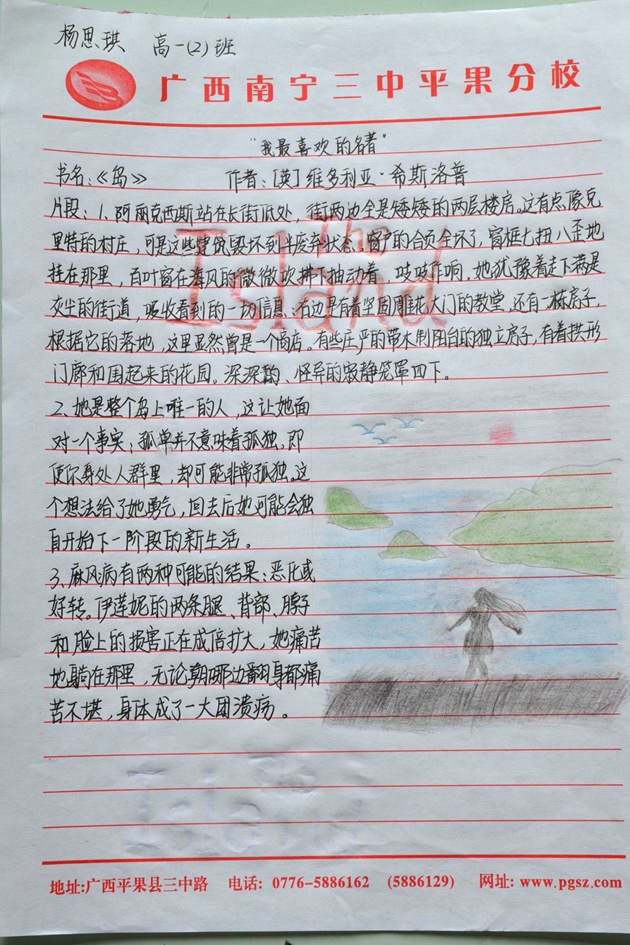 杨思琪 高一(2)班
广西南宁三中平果分校
"我最喜欢的名著"
书名:《岛》 作者:[英]维多利亚·希斯洛普
片段:1、阿丽克西斯站在长街低处,街两边全是矮矮的两层楼房。这有点像克
里特的村庄,可是这些建筑毁坏到半废弃状态。窗户的合页全坏了,窗框七扭八歪地
挂在那里,百叶窗在海风的微微吹拂下抽动着,吱吱作响,她犹豫着走下满是
灰尘的街道,吸收看到的一切信息:右边是有着坚固雕花大门的教堂,还有一栋房子,
根据它的落地,这里显然曾是一个商店。有些庄严的带木制阳台的独立房子,有着拱形
门廊和围起来的花园。深深的、怪异的寂静笼罩四下。
The
Island
2、她是整个岛上唯一的人,这让她面
对一个事实:孤单并不意味着孤独。即
使你身处人群里,却可能非常孤独。这
个想法给了她勇气,回去后她可能会独
自开始下一阶段的新生活。
3、麻风病有两种可能的结果:恶化或
好转。伊莲妮的两条腿、背部、脖子
和脸上的损害正在成倍扩大,她痛苦
地躺在那里,无论朝哪边翻身都痛
苦不堪,身体成了一大团溃疡。
地址:广西平果县三中路 电话:0776-5886162 (5886129) 网址:www.pgsz.com